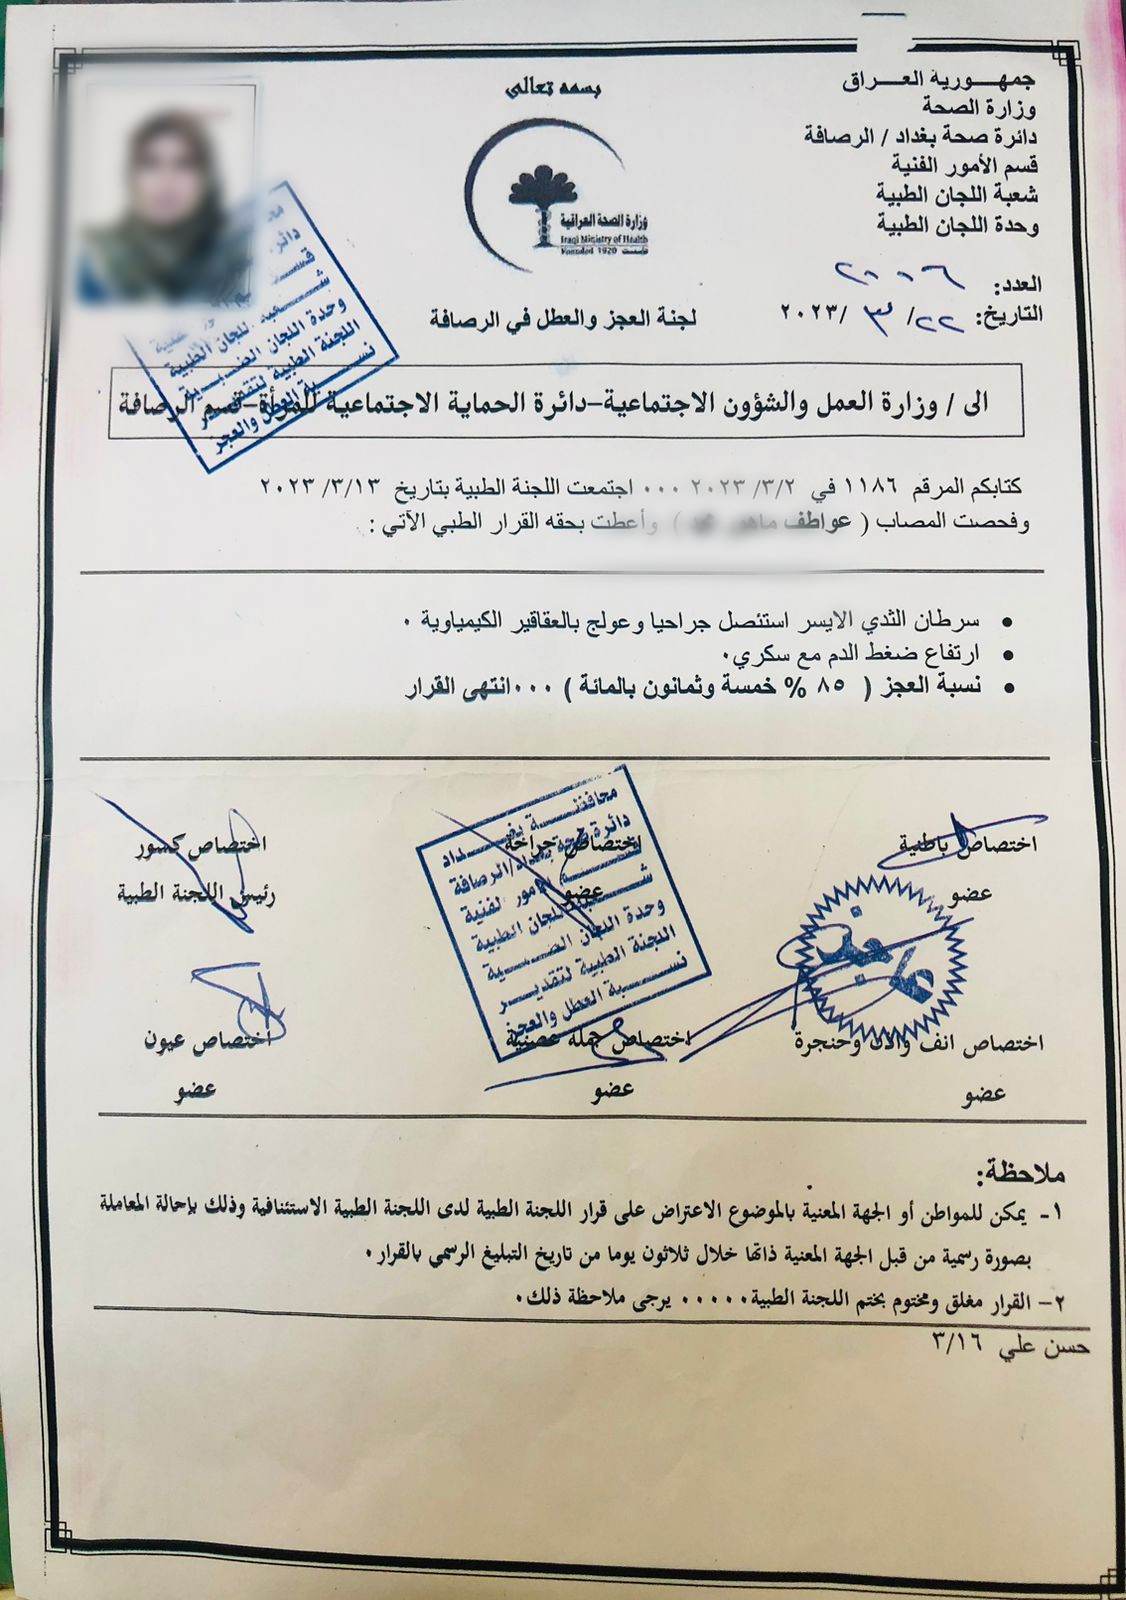 بسمه تعالى
جمهورية العراق
وزارة الصحة
دائرة صحة بغداد / الرصافة
قسم الأمور الفنية
شعبة اللجان الطبية
وحدة اللجان الطبية
وزارة الصحة العراقية
Iraqi Ministry of Health
Founded 1920 تأسست
العدد: ٢٠٠٠٦
التاريخ: ٢٢/ ٣ /٢٠٢٣
لجنة العجز والعطل في الرصافة
الى / وزارة العمل والشؤون الاجتماعية-دائرة الحماية الاجتماعية للمرأة-قسم الرصافة
كتابكم المرقم ١١٨٦ في ٣/٢/ ٢٠٢٣ ٠٠٠ اجتمعت اللجنة الطبية بتاريخ ٣/١٣/ ٢٠٢٣
وفحصت المصاب ( عواطف ) وأعطت بحقه القرار الطبي الآتي :
• سرطان الثدي الايسر استئصل جراحيا وعولج بالعقاقير الكيمياوية ٠
• ارتفاع ضغط الدم مع سكري٠
• نسبة العجز ( ٨٥ % خمسة وثمانون بالمائة ) ٠٠٠انتهى القرار
اختصاص باطنية
عضو
اختصاص جراحة
عضو
اختصاص كسور
رئيس اللجنة الطبية
محافظة بغداد
دائرة صحة بغداد/الرصافة
قسم الامور الفنية
شعبة اللجان الطبية
وحدة اللجان الطبية
اللجنة الطبية لتقدير
نسبة العطل والعجز
اختصاص انف والاذن وحنجرة
عضو
اختصاص جملة عصبية
عضو
اختصاص عيون
عضو
ملاحظة:
١- يمكن للمواطن أو الجهة المعنية بالموضوع الاعتراض على قرار اللجنة الطبية لدى اللجنة الطبية الاستئنافية وذلك بإحالة المعاملة
بصورة رسمية من قبل الجهة المعنية ذاتها خلال ثلاثون يوما من تاريخ التبليغ الرسمي بالقرار ٠
٢- القرار مغلق ومختوم بختم اللجنة الطبية٠٠٠٠٠ يرجى ملاحظة ذلك٠
حسن علي ٣/١٦